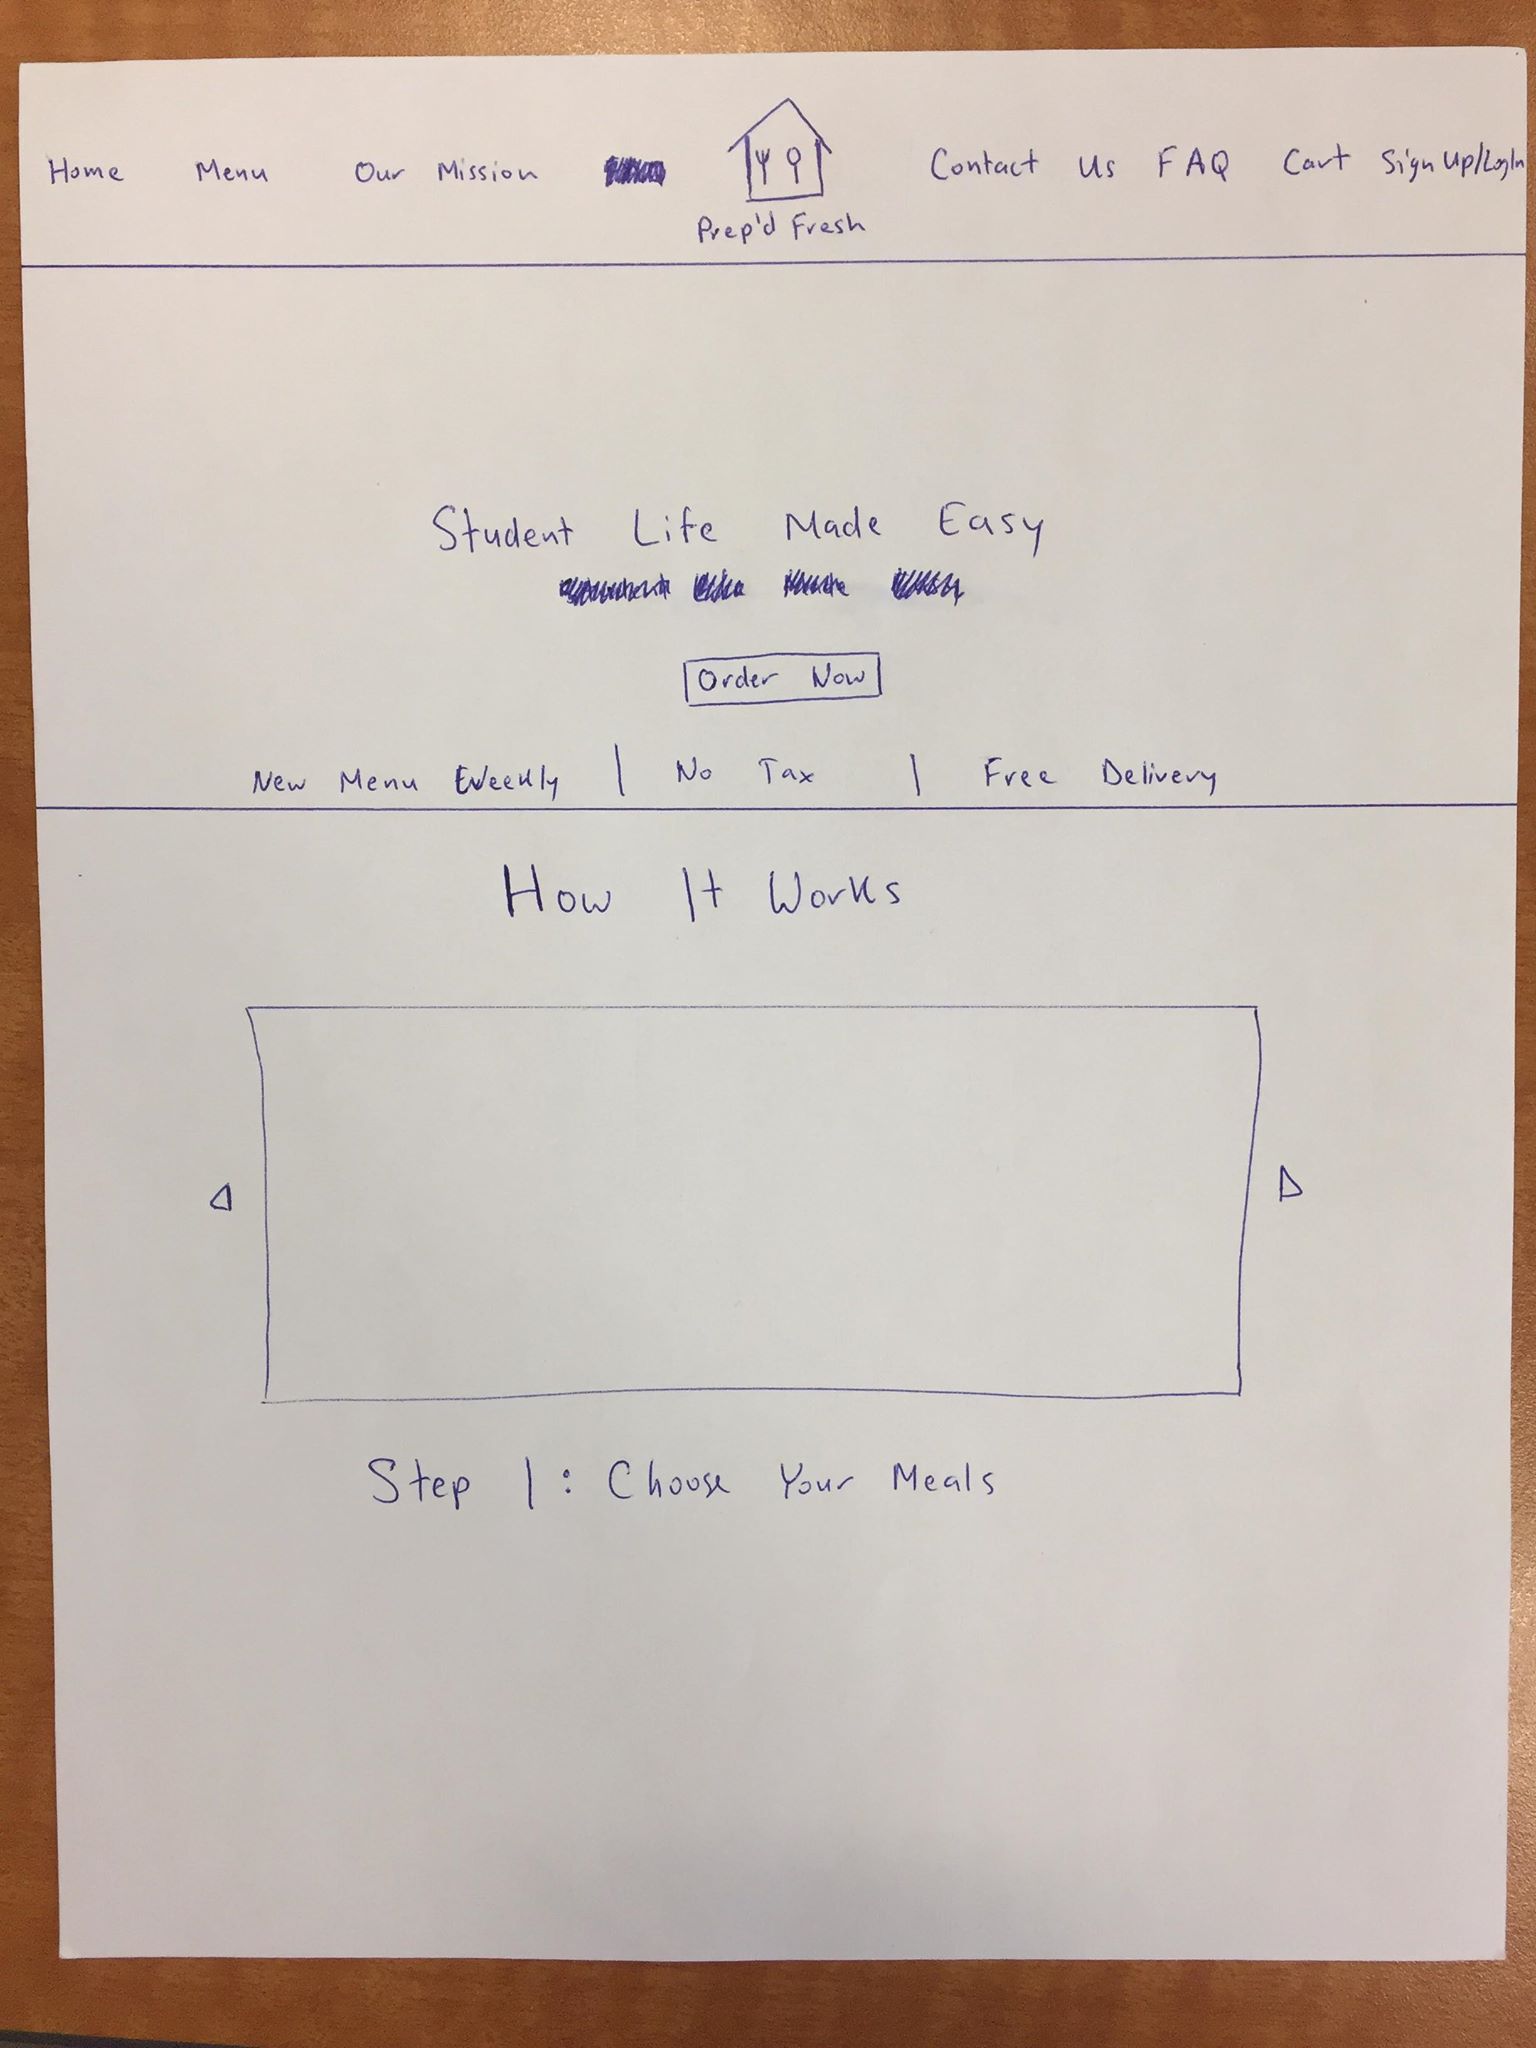 Home Menu Our Mission Contact Us FAQ Cart Sign Up/LogIn
Prep'd Fresh
Student Life Made Easy
Order Now
New Menu Weekly | No Tax | Free Delivery
How It Works
Step 1: Choose Your Meals